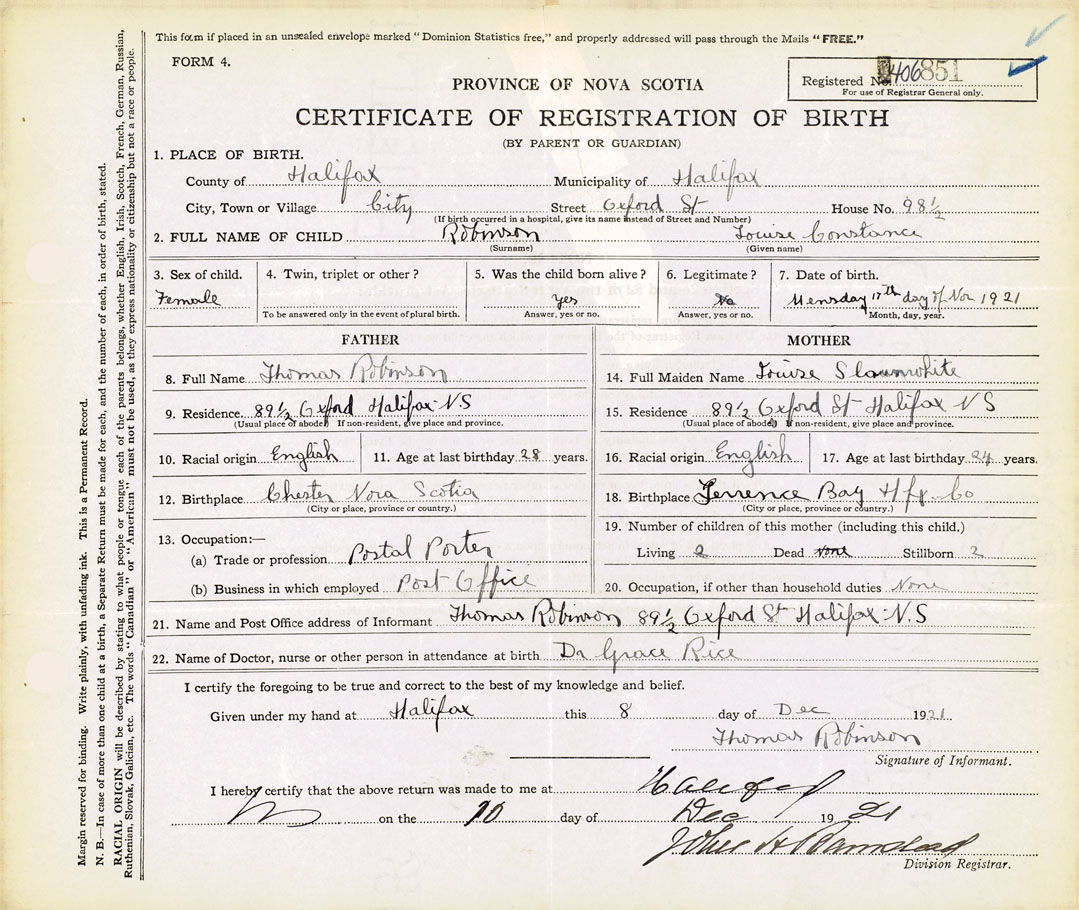 This form if placed in an unsealed envelope marked "Dominion Statistics free," and properly addressed will pass through the Mails "FREE."
FORM 4.
Registered No. 406851
For use of Registrar General only.
PROVINCE OF NOVA SCOTIA
CERTIFICATE OF REGISTRATION OF BIRTH
(BY PARENT OR GUARDIAN)
1. PLACE OF BIRTH.
County of Halifax Municipality of Halifax
City, Town or Village City Street Oxford St House No. 98½
(If birth occurred in a hospital, give its name instead of Street and Number)
2. FULL NAME OF CHILD Robinson Louise Constance
(Surname) (Given name)
3. Sex of child. 4. Twin, triplet or other? 5. Was the child born alive? 6. Legitimate? 7. Date of birth.
Female yes No day of Nov 1921
To be answered only in the event of plural birth. Answer, yes or no. Answer, yes or no. Month, day, year.
FATHER MOTHER
8. Full Name Thomas Robinson 14. Full Maiden Name Louise Slaunwhite
9. Residence 89½ Oxford Halifax N.S 15. Residence 89½ Oxford St Halifax N S
(Usual place of abode) If non-resident, give place and province. (Usual place of abode) If non-resident, give place and province.
10. Racial origin English 11. Age at last birthday 28 years. 16. Racial origin English 17. Age at last birthday 24 years.
12. Birthplace Chester Nova Scotia 18. Birthplace Terrence Bay Hfx Co
(City or place, province or country.) (City or place, province or country.)
13. Occupation:— 19. Number of children of this mother (including this child.)
(a) Trade or profession Postal Porter Living 2 Dead none Stillborn 2
(b) Business in which employed Post Office 20. Occupation, if other than household duties None
21. Name and Post Office address of Informant Thomas Robinson 89½ Oxford St Halifax N.S
22. Name of Doctor, nurse or other person in attendance at birth Dr Grace Rice
I certify the foregoing to be true and correct to the best of my knowledge and belief.
Given under my hand at Halifax this 8 day of Dec 1921
Thomas Robinson
Signature of Informant.
I hereby certify that the above return was made to me at Halifax
on the 10 day of Dec 1921
John H
Division Registrar.
Margin reserved for binding. Write plainly, with unfading ink. This is a Permanent Record.
N. B.—In case of more than one child at a birth, a Separate Return must be made for each, and the number of each, in order of birth, stated.
RACIAL ORIGIN will be described by stating to what people or tongue each of the parents belongs, whether English, Irish, Scotch, French, German, Russian,
Ruthenian, Slovak, Galician, etc. The words "Canadian" or "American" must not be used, as they express nationality or citizenship but not a race or people.